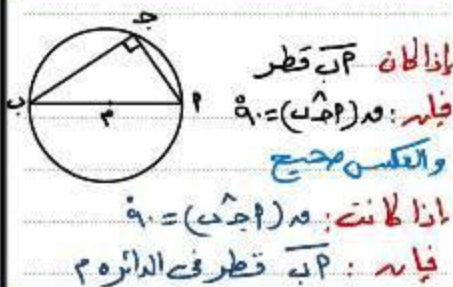 جـ
ب
م
أ
إذا كان أب قطر
فإن : ق(أجـب) = ٩٠°
والعكس صحيح
إذا كانت : ق(أجـب) = ٩٠°
فإن : أب قطر فى الدائره م